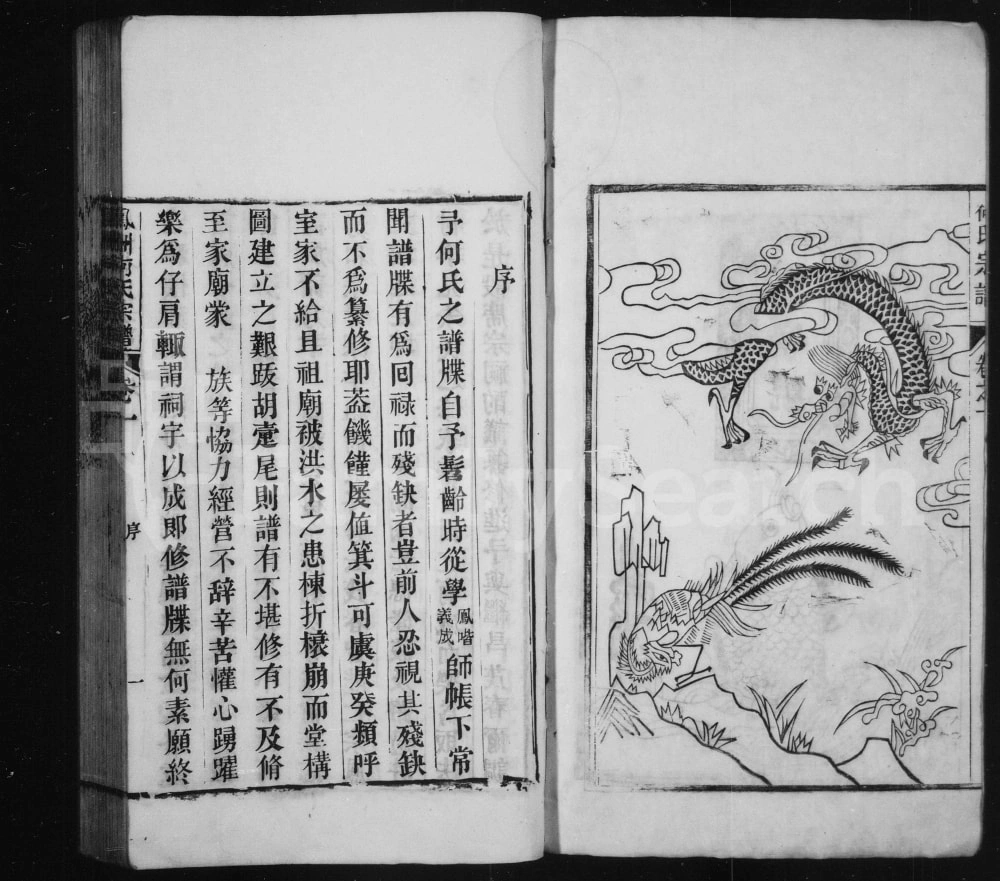 何氏宗譜
卷之一
序
予何氏之譜牒自予髫齡時從學鳳喈義成師帳下常
聞譜牒有爲回禄而殘缺者豈前人忍視其殘缺
而不爲纂修耶葢饑饉屡值箕斗可虞庚癸頻呼
室家不給且祖廟被洪水之患棟折榱崩而堂構
圖建立之艱跋胡疐尾則譜有不堪修有不及脩
至家廟蒙之族等恊力經營不辞辛苦懽心踴躍
樂爲仔肩輒謂祠宇以成即修譜牒無何素願終
鳳洲何氏宗譜
卷一
序
一